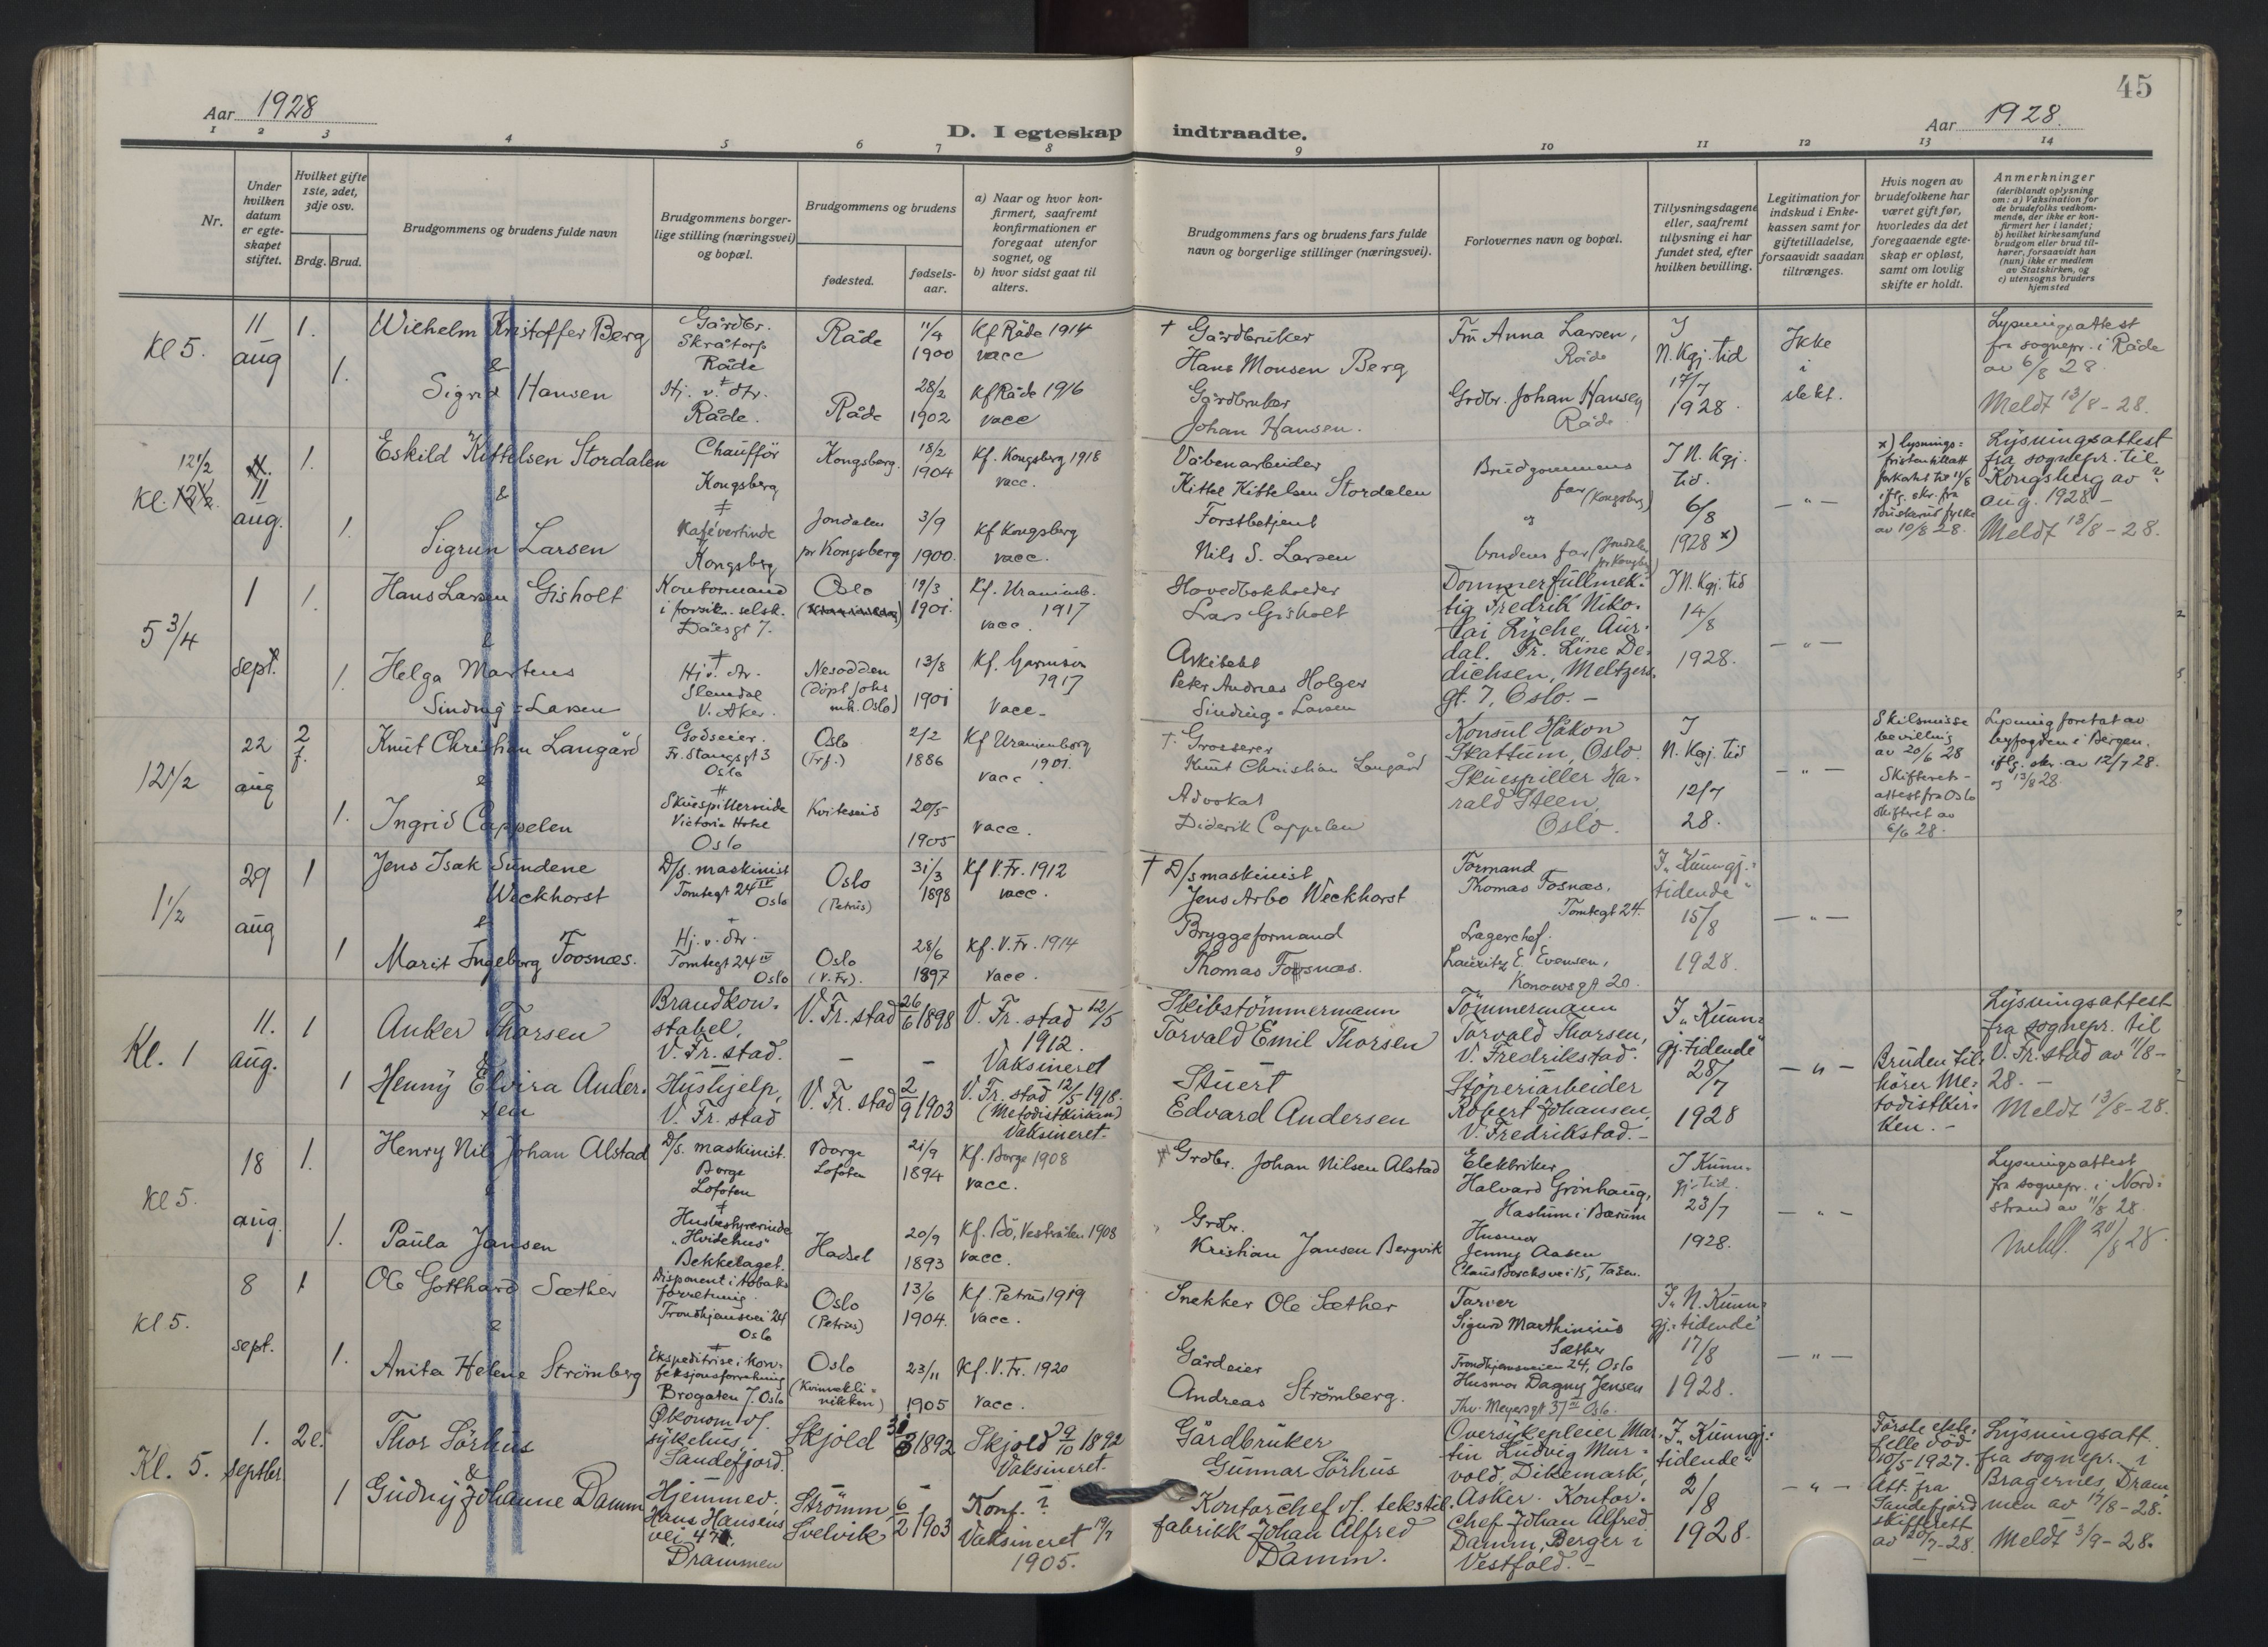 45
Aar 1928
Aar 1928.
D. I egteskap indtraadte.
1 2 3 4 5 6 7 8 9 10 11 12 13 14
Nr.
Under
hvilken
datum
er egte-
skapet
stiftet.
Hvilket gifte
1ste, 2det,
3dje osv.
Brdg. Brud.
Brudgommens og brudens fulde navn
Brudgommens borger-
lige stilling (næringsvei)
og bopæl.
Brudgommens og brudens
fødested.
fødsels-
aar.
a) Naar og hvor kon-
firmert, saafremt
konfirmationen er
foregaat utenfor
sognet, og
b) hvor sidst gaat til
alters.
Brudgommens fars og brudens fars fulde
navn og borgerlige stillinger (næringsvei).
Forlovernes navn og bopæl.
Tillysningsdagene
eller, saafremt
tillysning ei har
fundet sted, efter
hvilken bevilling.
Legitimation for
indskud i Enke-
kassen samt for
giftetilladelse,
forsaavidt saadan
tiltrænges.
Hvis nogen av
brudefolkene har
været gift før,
hvorledes da det
foregaaende egte-
skap er opløst,
samt om lovlig
skifte er holdt.
Anmerkninger
(deriblandt oplysning
om: a) Vaksination for
de brudefolks vedkom-
mende, der ikke er kon-
firmert her i landet;
b) hvilket kirkesamfund
brudgom eller brud til-
hører, forsaavidt han
(hun) ikke er medlem
av Statskirken, og
c) utensogns bruders
hjemsted
Kl 5.
11
aug
1.
1.
Wilhelm Kristoffer Berg
&
Sigrid Hansen
Gårdbr.
Skråtorp
Råde
Hj. v. dtr.
Råde.
Råde
Råde
11/4
1900
28/2
1902
Kf Råde 1914
vacc
Kf Råde 1916
vacc
† Gårdbruker
Hans Monsen Berg
Gårdbruker
Johan Hansen.
Fru Anna Larsen,
Råde
Grdbr. Johan Hansen
Råde
I
N. Kgj. tid
17/7
1928.
Ikke
i
slekt.
Lysningsattest
fra sognepr. i Råde
av 6/8 28.
Meldt 13/8-28.
12 1/2
Kl.
11
aug.
1.
1.
Eskild Kittelsen Stordalen
&
Sigrun Larsen
Chauffør
Kongsberg
Kafévertinde
Kongsberg
Kongsberg.
Jondalen
pr Kongsberg
18/2
1904
3/9
1900.
Kf. Kongsberg 1918
vacc.
Kf Kongsberg
vacc.
Våbenarbeider
Kittel Kittelsen Stordalen
Forstbetjent
Nils S. Larsen
Brudgommens
far (Kongsberg)
og
brudens far (Jondalen
pr Kongsberg)
I N. Kgj.
tid.
6/8
1928 x)
— " —
x) lysnings-
fristen tillatt
forkortet til 11/8
iflg. skr. fra
Buskerud fylke
av 10/8 28.
Lysningsattest
fra sognepr. til
Kongsberg av ?
aug. 1928 –
Meldt 13/8-28.
5 3/4
1
sept.
1.
1.
Hans Larsen Gisholt
&
Helga Martens
Sinding-Larsen
Kontormand
i forsikr. selsk.
Daasgt 7.
Hj. v. dtr.
Slemdal
V. Aker.
Oslo
Nesodden
(döpt Johs
mk. Oslo)
19/3
1901.
13/8
1901
Kf. Uranienb.
1917
vacc.
Kf. Garnison
1917
Vacc.
Hovedbokholder
Lars Gisholt
Arkitekt
Peter Andreas Holger
Sinding-Larsen
Dommerfullmek-
tig Fredrik Niko-
lai Lyche, Aur-
dal. Fr. Line De-
dichsen, Meltzers
gt. 7, Oslo. –
I N. Kgj. tid
14/8
1928.
— " —
12 1/2
22
aug
2
f.
1.
Knut Christian Langård
&
Ingrid Cappelen
Godseier.
Fr. Stangsgt 3
Oslo
Skuespillerinde
Victoria Hotel
Oslo
Oslo
(Trf.)
Kviteseid
2/2
1886
20/5
1905
Kf Uranienborg
1901.
vacc.
vacc.
†. Grosserer
Knut Christian Langård
Advokat
Diderik Cappelen
Konsul Håkon
Skattum, Oslo.
Skuespiller Ha-
rald Steen,
Oslo.
I
N. Kgj. tid
12/7
28.
— " —
Skilsmisse
bevilling
av 20/6 28
Skifteretts-
attest fra Oslo
skifteret av
6/6 28.
Lysning foretat av
byfogden i Bergen.
iflg. skr. av 12/7 28.
og 13/8 28
1 1/2
29
aug
1
1
Jens Isak Sundene
Weckhorst
&
Marit Ingeborg Foosnæs.
D/s. maskinist
Tomtegt 24 IV
Oslo
Hj. v. dtr.
Tomtegt 24 IV
Oslo
Oslo
(Petrus)
Oslo
(V. Fr).
31/3
1898
28/6
1897
Kf V. Fr. 1912
vacc.
Kf. V. Fr. 1914
Vacc.
† D/s maskinist
Jens Arbo Weckhorst
Bryggeformand
Thomas Fosnæs.
Formand
Thomas Fosnæs,
Tomtegt 24.
Lagerchef.
Lauritz E. Evensen,
Konowsgt 20.
I „Kunngj.-
tidende"
15/8
1928.
— " —
Kl. 1
11.
aug.
1
1
Anker Thorsen
&
Henny Elvira Ander-
sen
Brandkon-
stabel,
V. Fr. stad.
Hushjelp,
V. Fr. stad
V. Fr. stad
V. Fr. stad
26/6 1898
2/9 1903
V. Fr. stad 12/5
1912.
Vaksineret
V. Fr. stad 12/5 1918.
(Metodistkirken)
Vaksineret.
Skibstömmermann
Torvald Emil Thorsen
Stuert
Edvard Andersen
Tömmermann
Torvald Thorsen,
V. Fredrikstad.
Stöperiarbeider
Robert Johansen,
V. Fredrikstad. –
I „Kunn-
gj. tidende"
28/7
1928
— " —
Bruden til-
hører Me-
todistkir-
ken. –
Lysningsattest
fra sognepr. til
V. Fr. stad av 11/8 –
28. –
Meldt 13/8-28.
Kl 5.
18
aug.
1.
1.
Henry Nils Johan Alstad
&
Paula Jansen
D/s. maskinist.
Borge
Lofoten
Husbestyrerinde
„Hvidehus"
Bekkelaget.
Borge
Lofoten
Hadsel
21/9
1894
20/9
1893
Kf. Borge 1908
vacc.
Kf. Bö, Vesterålen 1908
vacc.
Grdbr. Johan Nilsen Alstad
Grdbr.
Kristian Jansen Bergvik
Elektriker
Halvard Grinhaug,
Haslum i Bærum
Husmor
Jenny Aasen
Claus Borchsvei 15, Tåsen.
I Kunn-
gj. tid.
23/7
1928.
— " —
Lysningsattest
fra sognepr. i Nord-
strand av 11/8 28.
Meldt 20/8 28.
Kl 5.
8
sept.
1
1.
Ole Gotthard Sæther
&
Anita Helene Strömberg
Disponent i tobaks
forretning.
Trondhjemsvei 24
Oslo
Ekspeditrise i kon-
feksjonsforretning
Brogaten 7. Oslo
Oslo
(Petrus)
Oslo
(Kvinnekli-
nikken)
13/6
1904.
23/11
1905
Kf. Petrus 1919
vacc.
Kf. V. Fr. 1920
vacc.
Snekker Ole Sæther
Gårdeier
Andreas Strömberg.
Farver
Sigurd Marthinius
Sæther
Trondhjemsveien 24, Oslo
Husmor Dagny Jensen
Thv. Meyersgt 37 II Oslo.
I „N. Kunn-
gj.-tidende"
17/8
1928.
— " —
Kl. 5.
1.
septbr.
2e.
1
Thor Sörhus
&
Gudny Johanne Damm
Økonom v/
sykehus,
Sandefjord.
Hjemmev.
Hans Hansens
vei 47,
Drammen
Skjold
Strömm,
Svelvik
1892
6/2 1903
Skjold 9/10 1892
Vaksineret.
Konf. ?
Vaksineret 19/7
1905.
Gårdbruker
Gunnar Sörhus
Kontorchef v/. tekstil-
fabrikk Johan Alfred
Damm.
Oversykepleier Mar-
tin Ludvig Mur-
vold, Dikemark,
Asker. Kontor-
chef Johan Alfred
Damm, Berger i
Vestfold. –
I „Kunngj.-
tidende"
2/8
1928.
— " —
Første ekte-
felle död
10/5 1927.
Att. fra
Sandefjord
skifterett
av 20/7-28.
Lysningsatt.
fra sognepr. i
Bragernes, Dram-
men av 17/8-28.
Meldt 3/9-28.